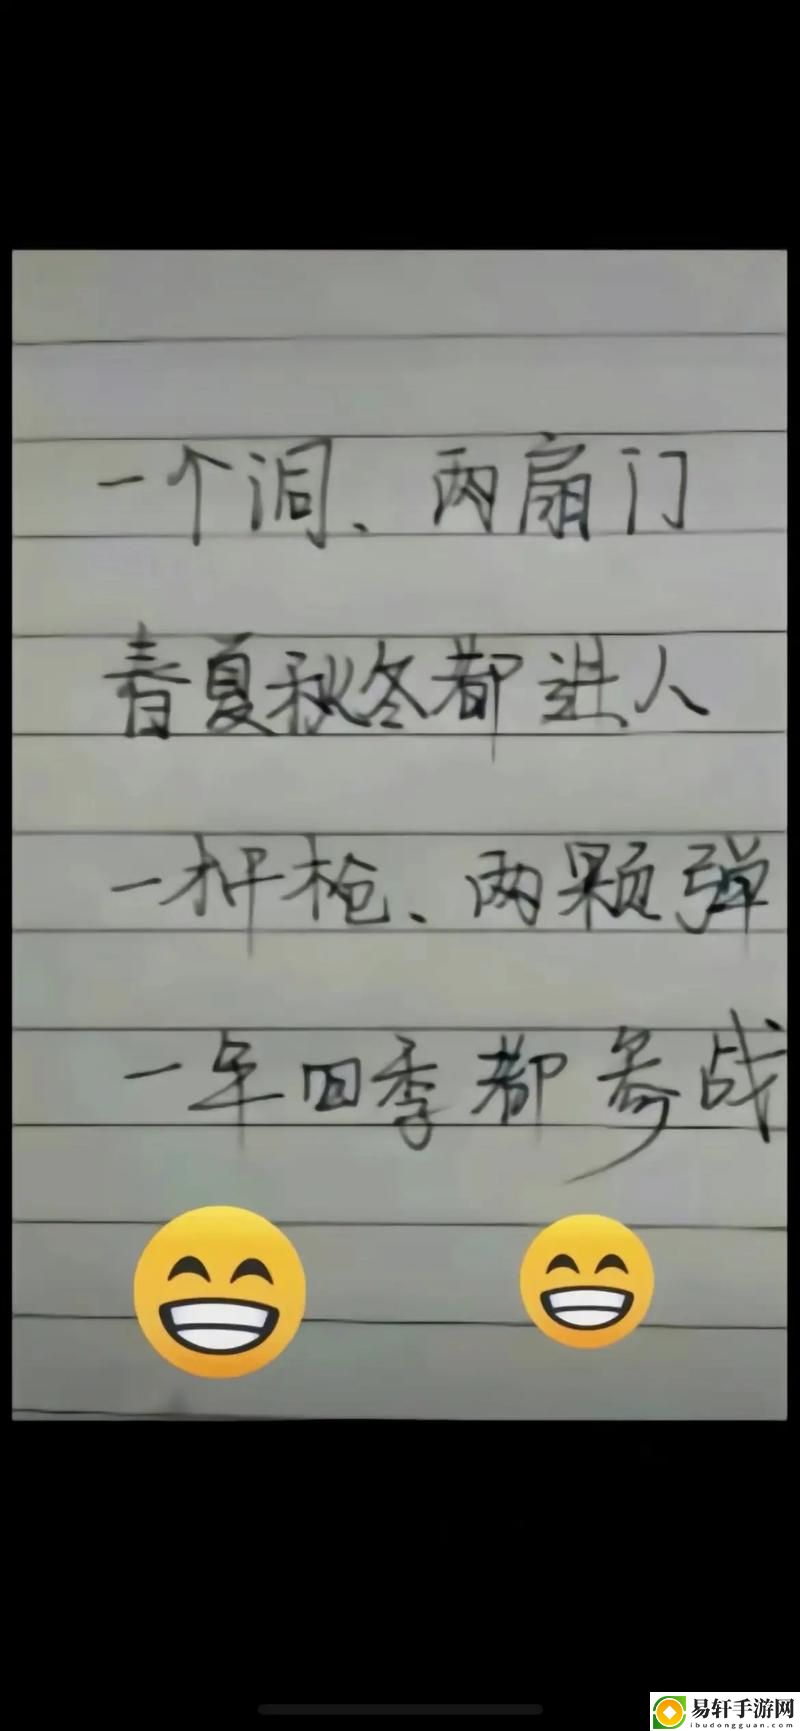 一个洞、两扇门
春夏秋冬都进人
一杆枪、两颗弹
一年四季都参战
易轩手游网
ibudongguan.com